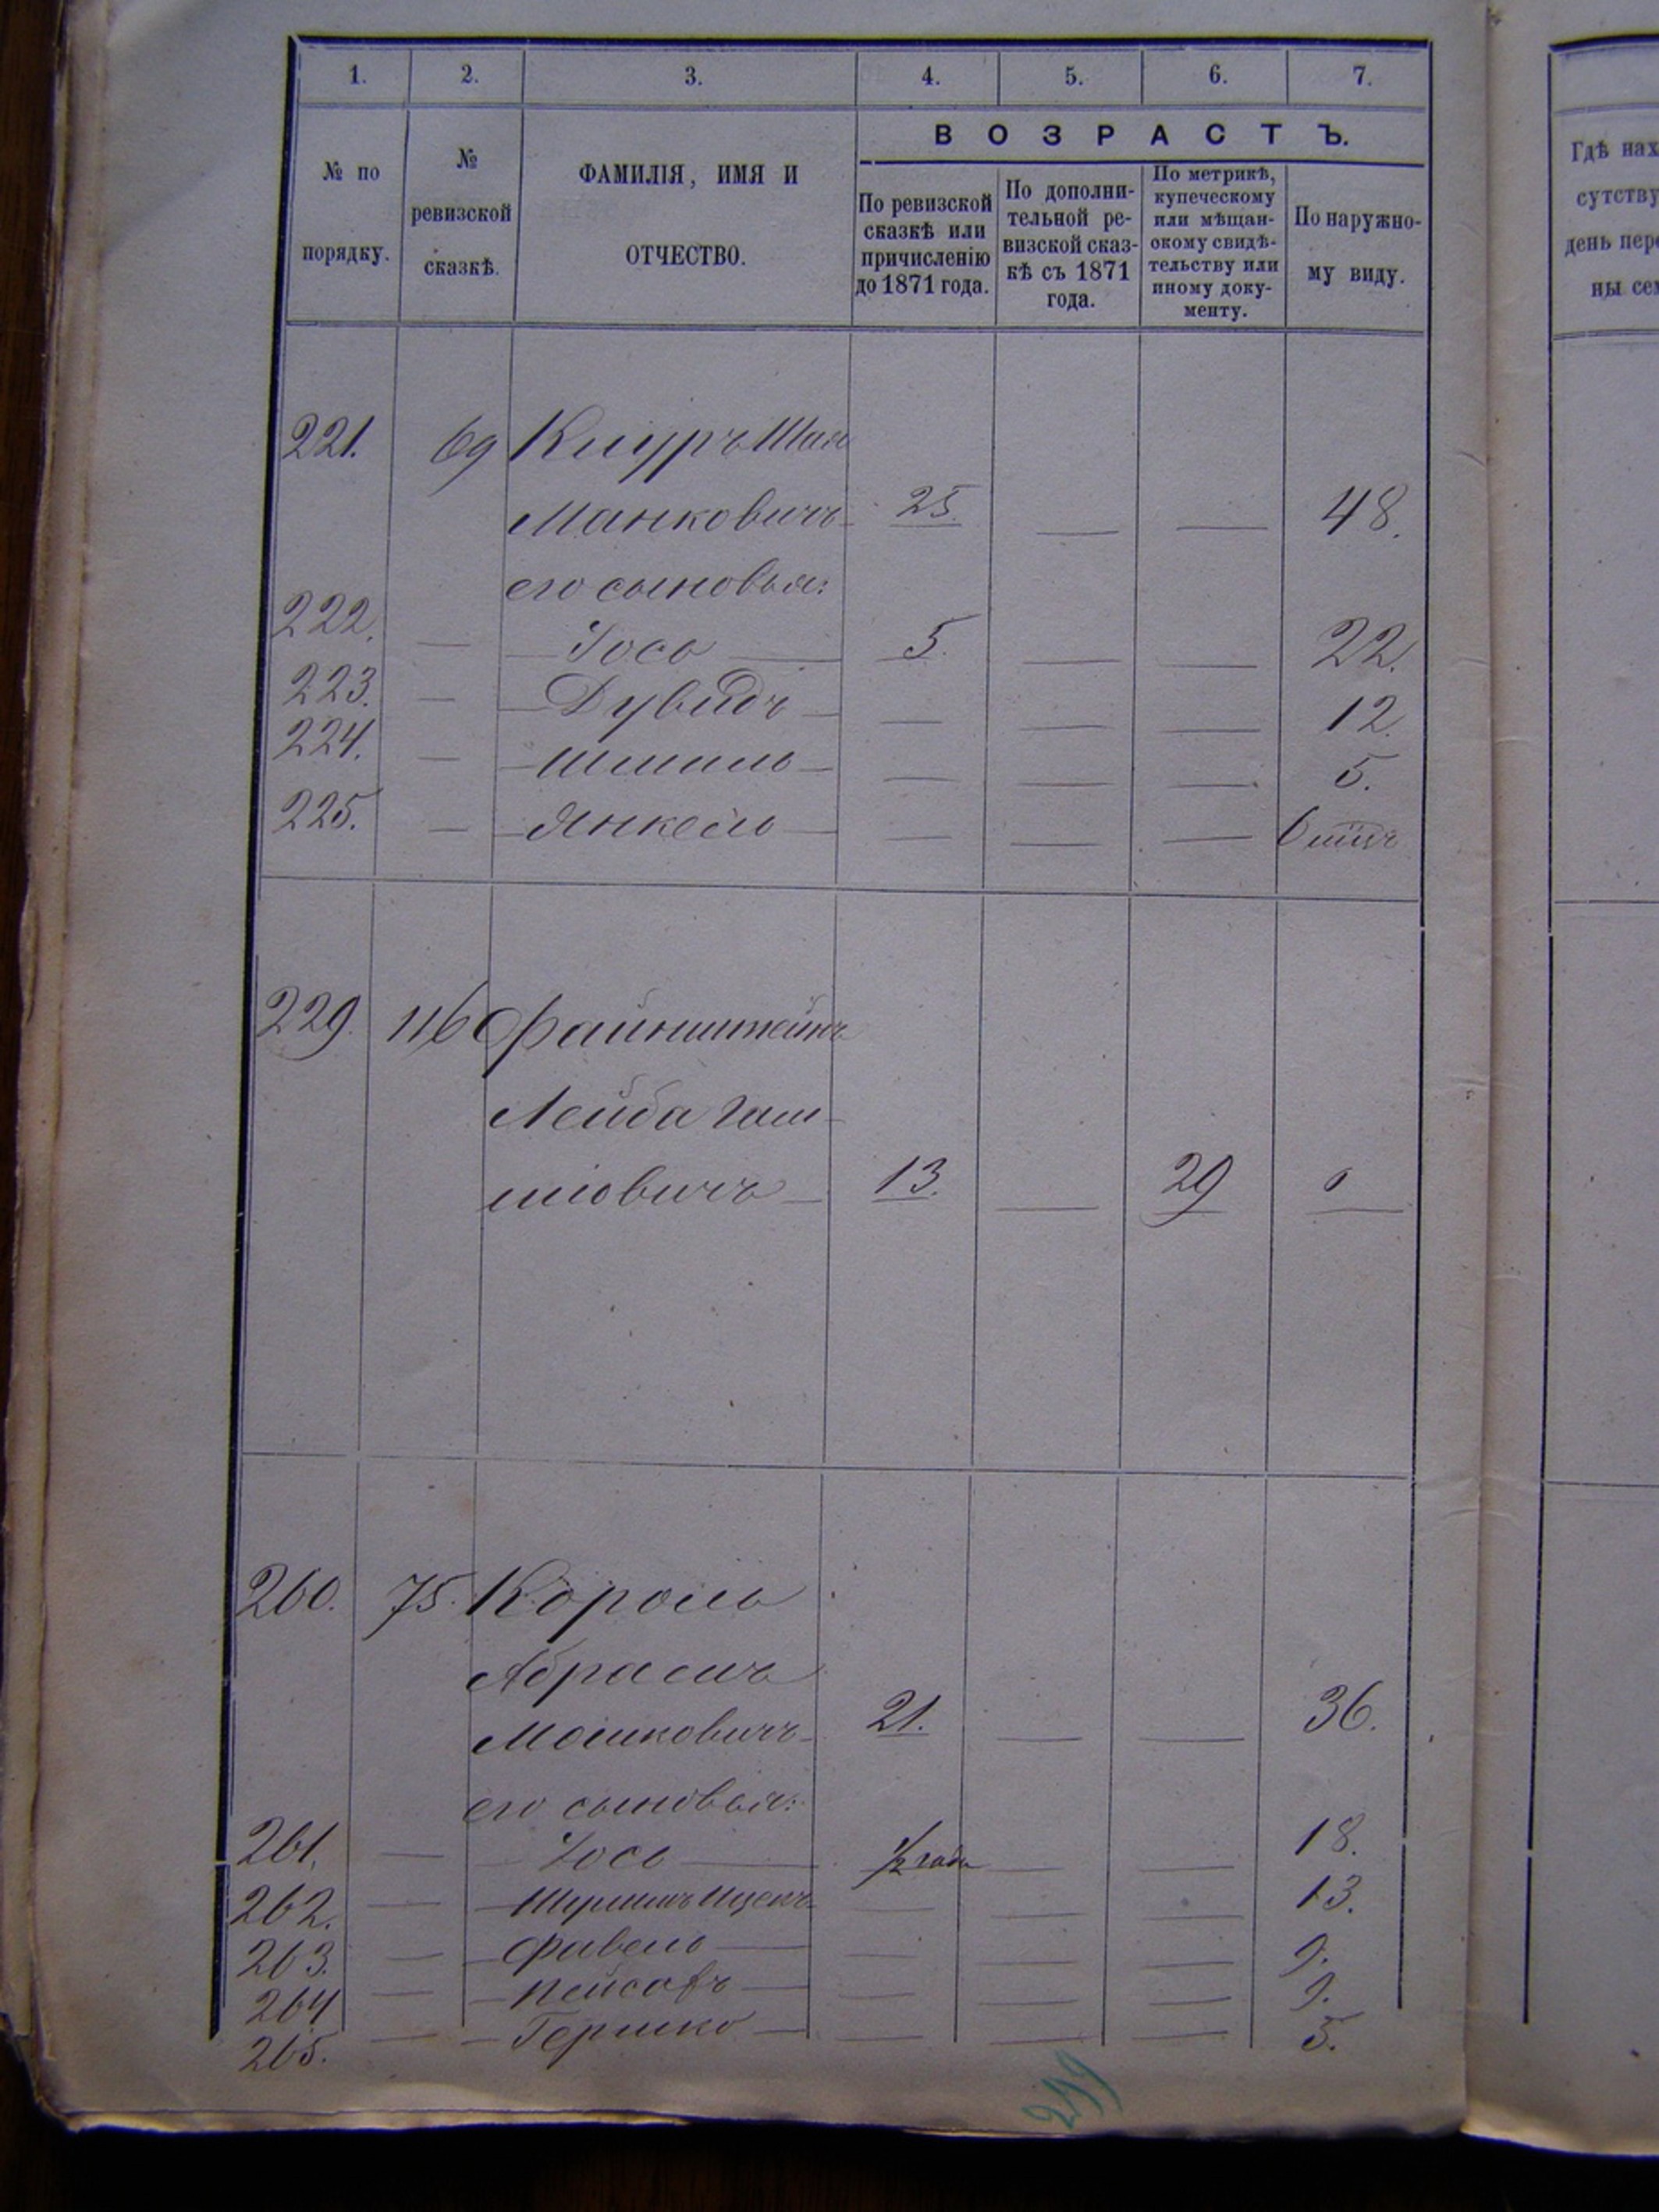 1. 2. 3. 4. 5. 6. 7.
№ по порядку.
№ ревизской сказкѣ.
ФАМИЛІЯ, ИМЯ И ОТЧЕСТВО.
ВОЗРАСТЪ.
По ревизской сказкѣ или причисленію до 1871 года.
По дополни-тельной ре-визской сказ-кѣ съ 1871 года.
По метрикѣ, купеческому или мѣщан-скому свидѣ-тельству или иному доку-менту.
По наружно-му виду.
Гдѣ нах
сутству
день пере
ны сем
221. 69 Шая
Манковичъ 25. — — 48.
его сыновья:
222. — Іось — 5. — — 22.
223. — Дувидъ — — — — 12.
224. — — — — 5.
225. — Янкель — — — —
229. 116 Файнштейнъ
Лейба
13. — 29
260. 75. Король
Абрамъ
Мошковичъ 21. — — 36.
его сыновья:
261. — Іось — ½ года — — 18.
262. — Ицекъ — — — 13.
263. — Файвель — — — — 9.
264 — Пейсахъ — — — — 9.
265. — Гершко — — — — 5.
299